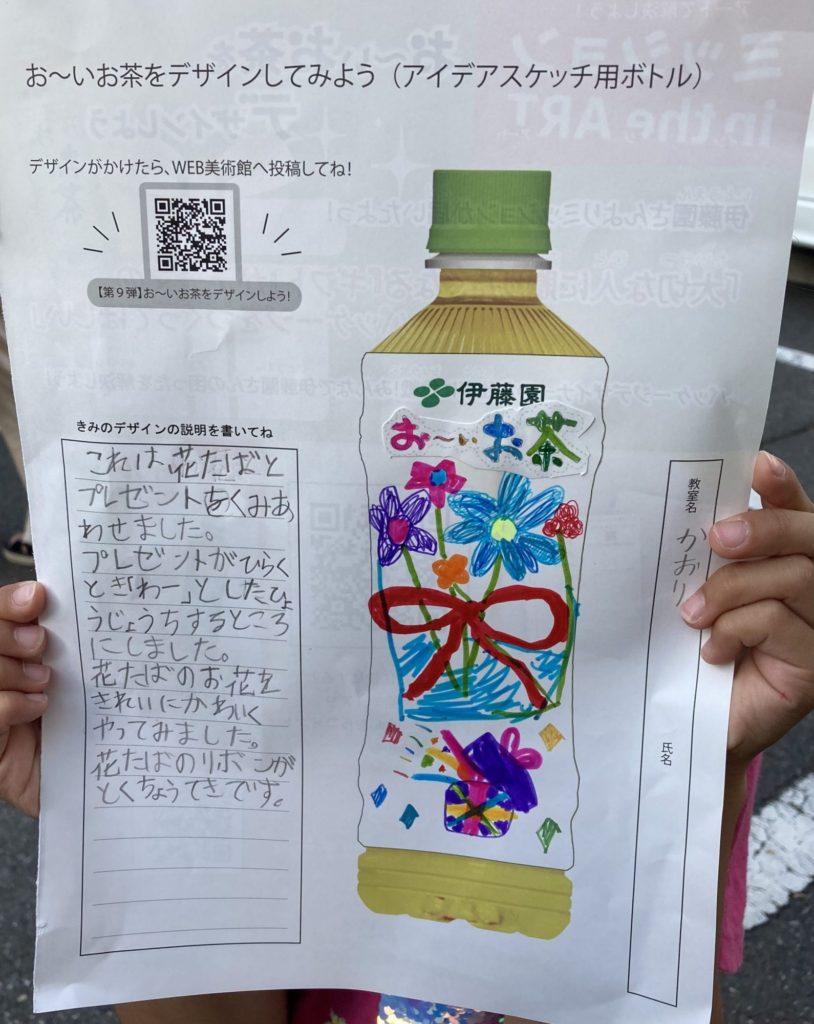 お～いお茶をデザインしてみよう（アイデアスケッチ用ボトル）
デザインがかけたら、WEB美術館へ投稿してね！
【第９弾】お～いお茶をデザインしよう！
きみのデザインの説明を書いてね
これは花たばと
プレゼントをくみあ
わせました。
プレゼントがひらく
とき「わー」としたひょ
うじょうちするところ
にしました。
花たばのお花を
きれいにかわいく
やってみました。
花たばのリボンが
とくちょうてきです。
伊藤園
お～いお茶
教室名
かおり
氏名